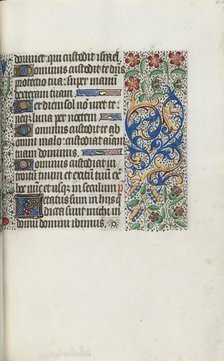 dormiet: qui custodit israel
Dominus custodit te dns
protectio tua: super manū
dexteram tuam
Per diem sol nō uret te:
neq; luna per noctem
Dominus custodit te ab
omni malo: custodiat aīam
tuam dominus
Dominus custodiat in
troitum tuum et exitū tuū ex
hoc nūc et usq; in seculum
Letatus sum in hijs q̄
dicta sunt michi in
domū domini ibimus